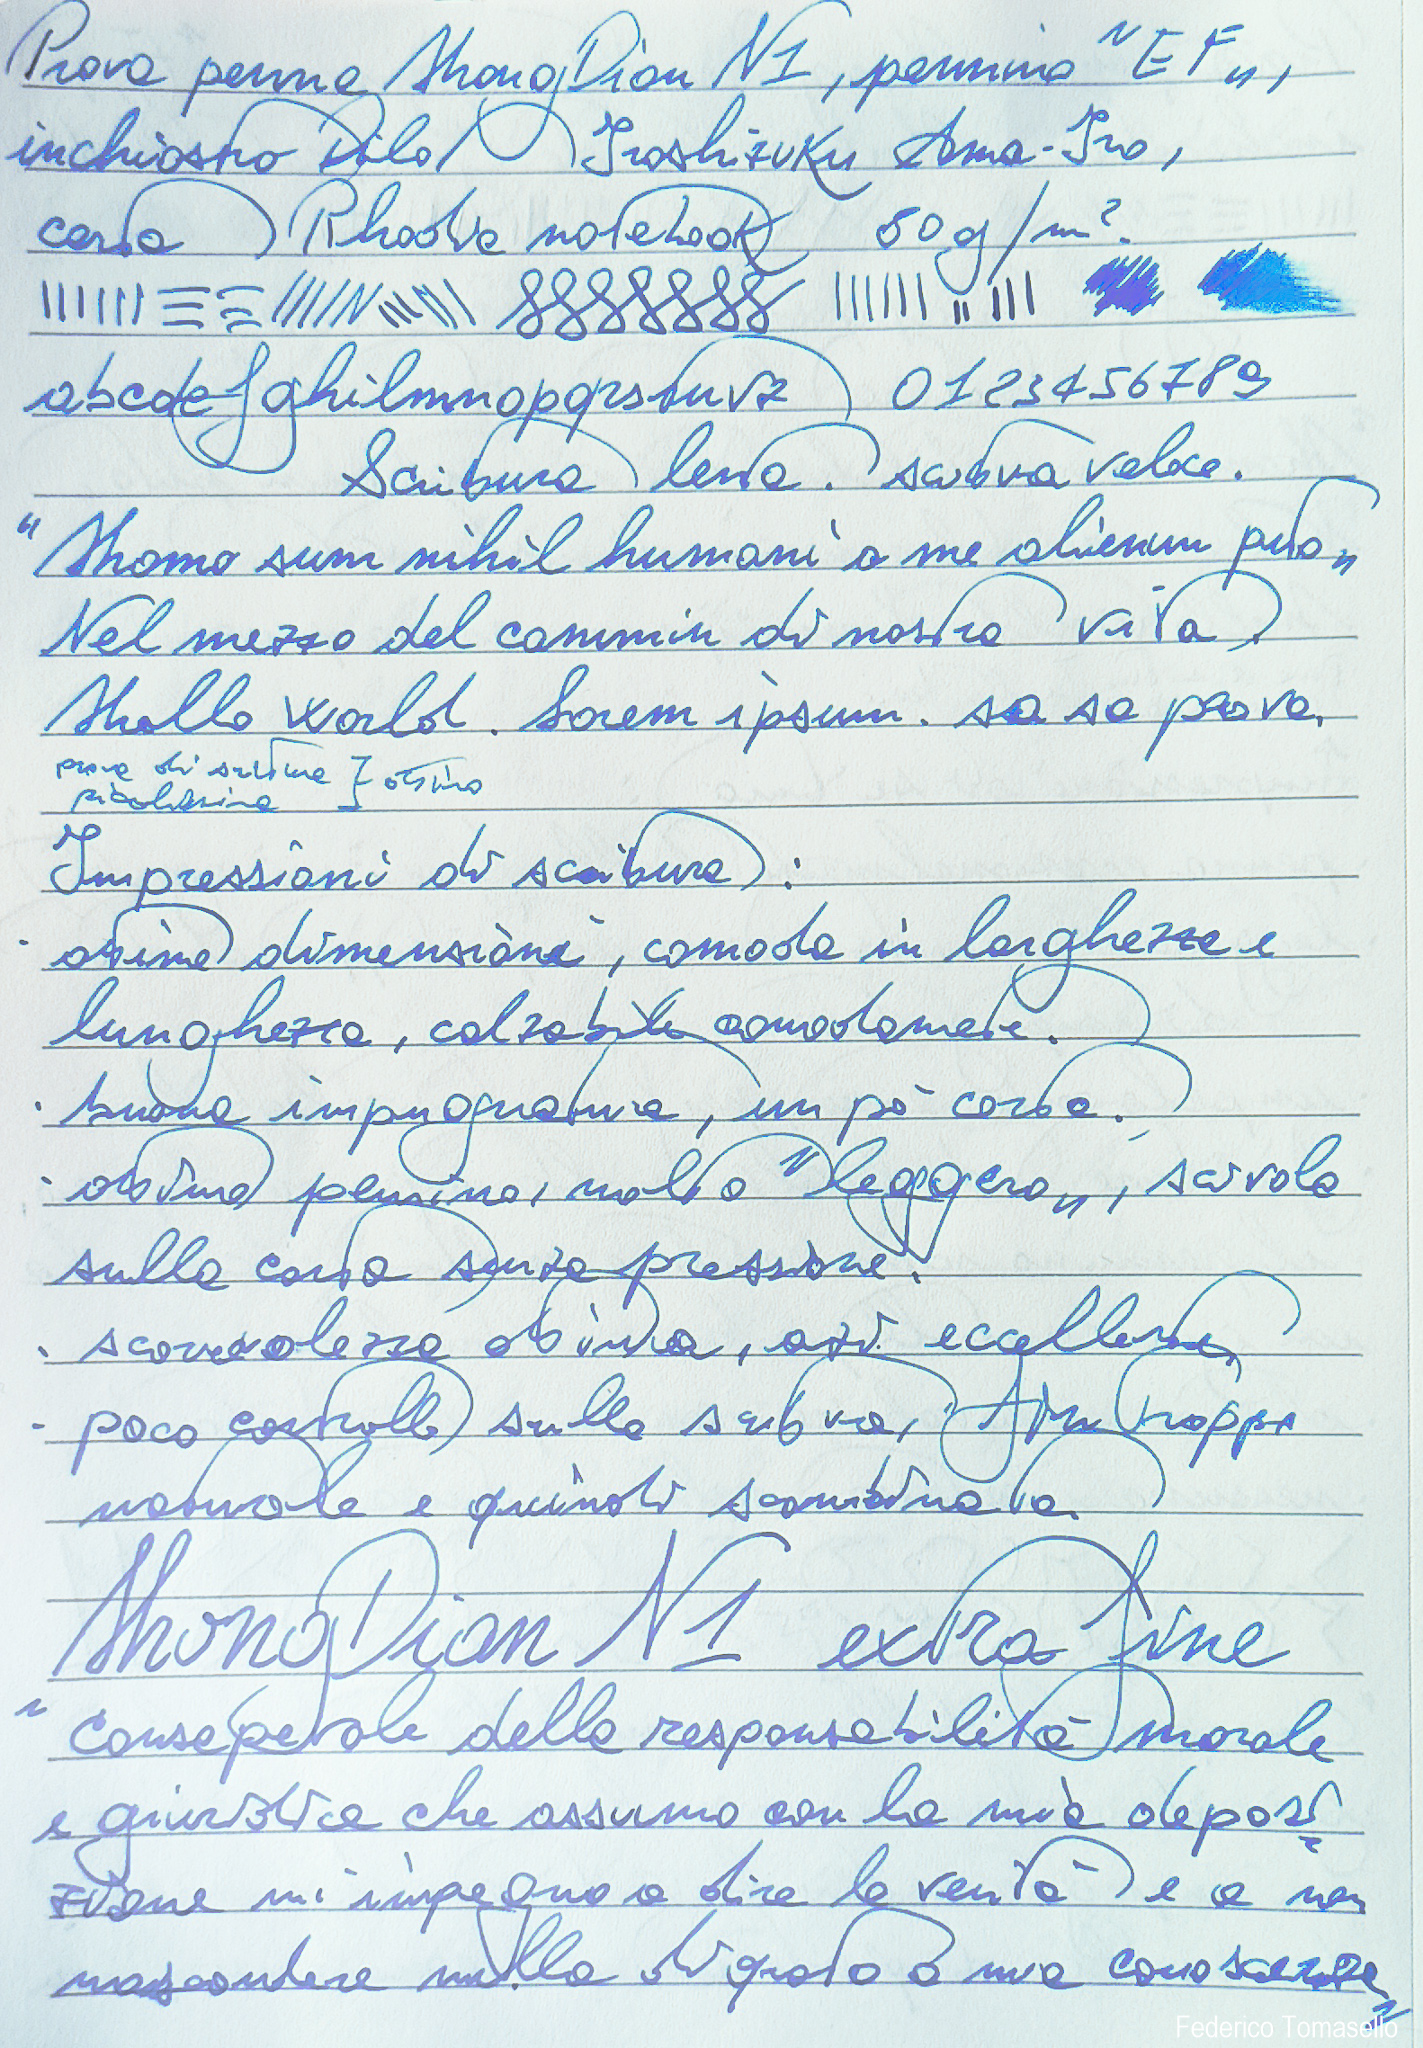 Prova penna HongDian N1, pennino "EF",
inchiostro Pilot Iroshizuku Ama-Iro,
carta Rhodia notebook 80 g/m².
abcdefghilmnopqrstuvz 0123456789
Scrittura lenta. scrittura veloce.
"Homo sum nihil humani a me alienum puto"
Nel mezzo del cammin di nostra vita.
Hello World. Lorem ipsum. sa sa prova.
prova di scrittura } ottimo
piccolissima
Impressioni di scrittura:
· ottime dimensioni, comoda in larghezza e
lunghezza, calzabile comodamente.
· buona impugnatura, un pò corta.
· ottimo pennino, molto "leggero", scivola
sulla carta senza pressione.
· scorrevolezza ottima, anzi eccellente,
- poco controllo sulla scrittura, troppo
naturale e quindi scombinata.
HongDian N1 extra fine
"Consapevole della responsabilità morale
e giuridica che assumo con la mia deposi-
zione mi impegno a dire la verità e a non
nascondere nulla di quato a mia conoscenza"
Federico Tomasello